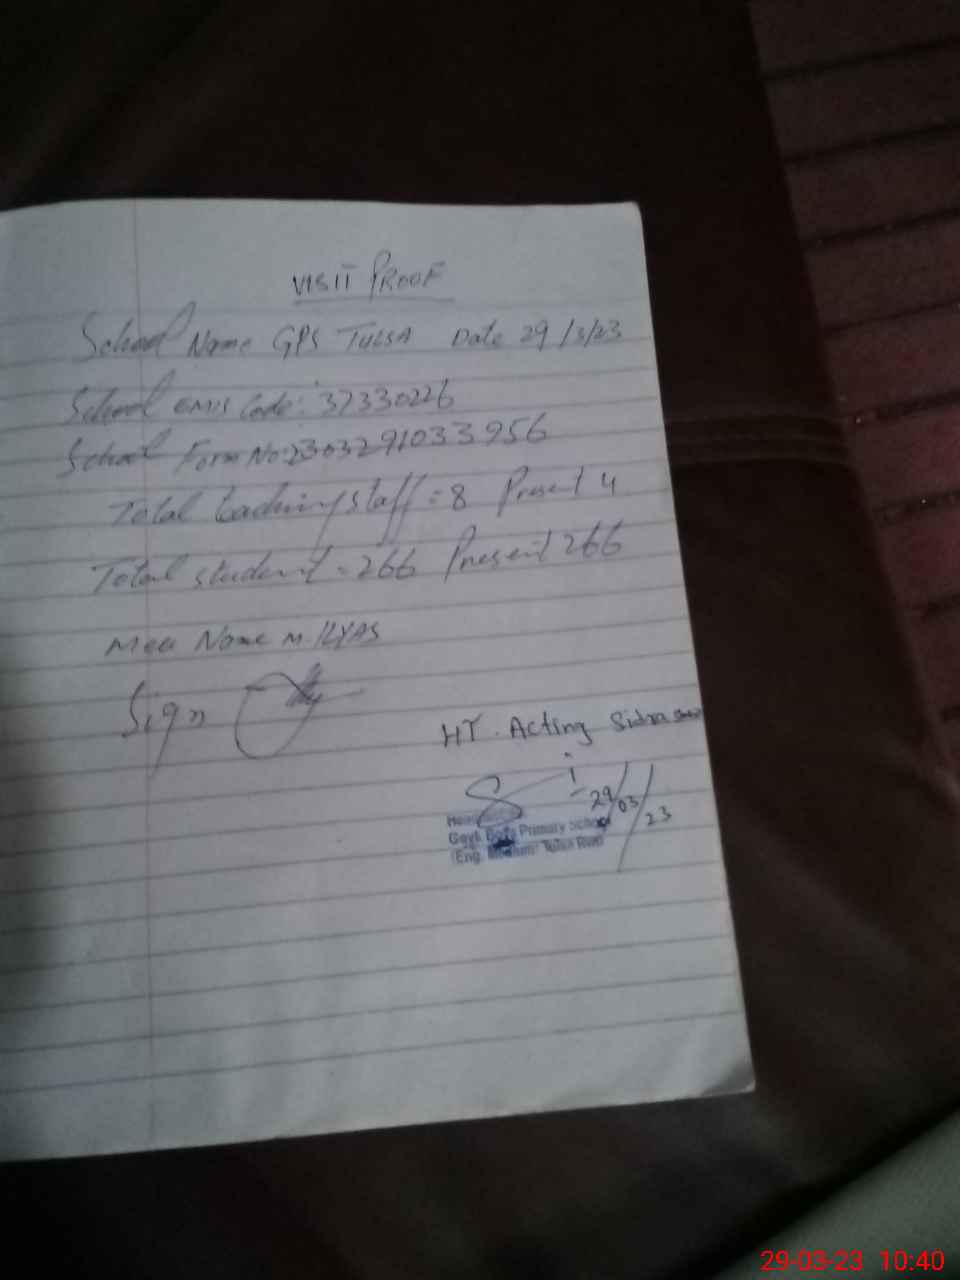 VISIT PROOF
School Name GPS TULSA Date 29/3/23
School EMIS Code: 37330226
School Form No: 2303291033956
Total teaching staff = 8 Present 4
Total student = 266 Present 266
Mea Name M. ILYAS
Sign
HT. Acting Sidra
29/03/23
Govt. Boys Primary School
(Eng. Medium) Tulsa Rwp
29-03-23 10:40